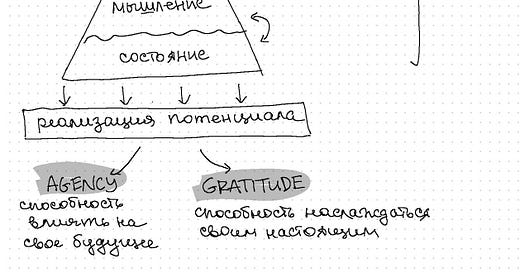 мышление
состояние
реализация потенциала
AGENCY
способность
влиять на
свое будущее
GRATITUDE
способность наслаждаться
своим настоящим